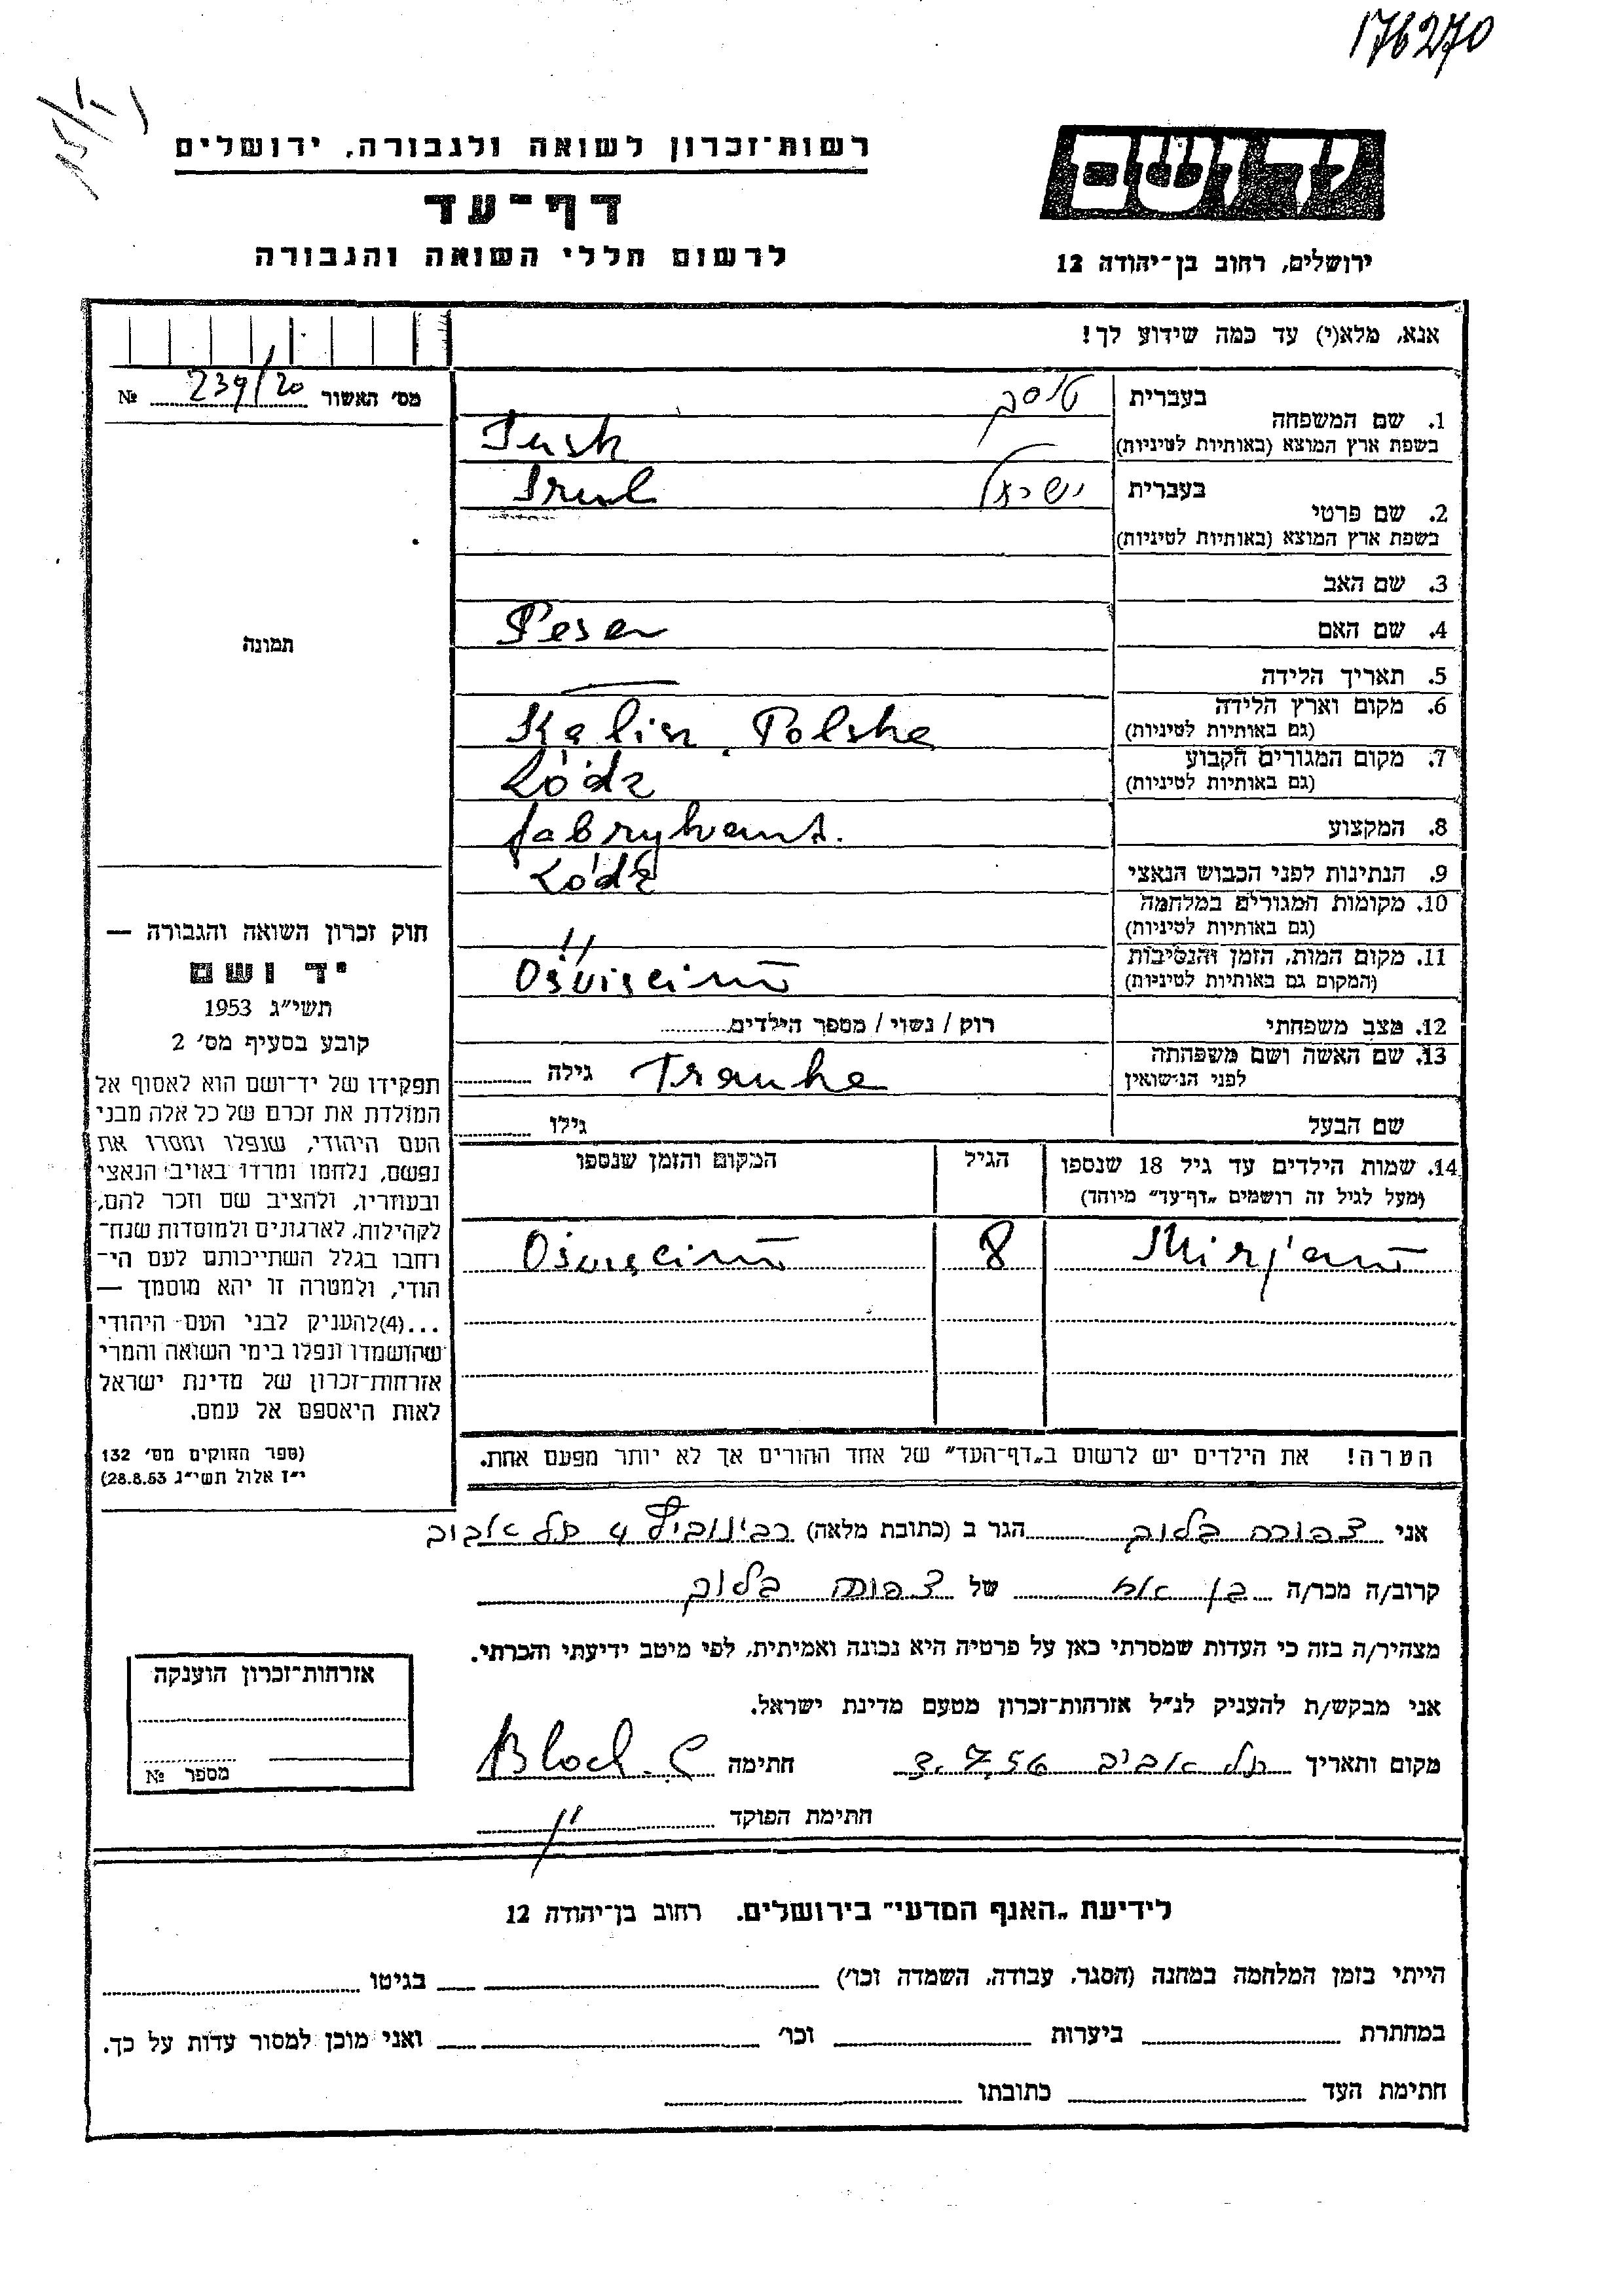 176270
רשות־זכרון לשואה ולגבורה, ירושלים
דף־עד
לרשום חללי השואה והגבורה
יד ושם
ירושלים, רחוב בן־יהודה 12
אנא, מלא(י) עד כמה שידוע לך!
מס׳ האשור 239/20 №
1. שם המשפחה
בעברית טוסק
בשפת ארץ המוצא (באותיות לטיניות) Tusk
2. שם פרטי
בעברית ישראל
Irul
בשפת ארץ המוצא (באותיות לטיניות)
3. שם האב
4. שם האם Pesa
5. תאריך הלידה —
6. מקום וארץ הלידה
(גם באותיות לטיניות) Kalisz. Polska
7. מקום המגורים הקבוע
(גם באותיות לטיניות) Łódz
8. המקצוע fabrykant.
9. הנתינות לפני הכבוש הנאצי Łódź
10. מקומות המגורים במלחמה
(גם באותיות לטיניות) "
11. מקום המות, הזמן והנסיבות
(המקום גם באותיות לטיניות) Oświęcim
12. מצב משפחתי רוק / נשוי / מספר הילדים
13. שם האשה ושם משפחתה
לפני הנישואין Franka גילה
שם הבעל גילו
14. שמות הילדים עד גיל 18 שנספו
(מעל לגיל זה רושמים „דף־עד״ מיוחד)
הגיל
המקום והזמן שנספו
Mirjam 8 Oświęcim
הערה! את הילדים יש לרשום ב„דף־העד״ של אחד ההורים אך לא יותר מפעם אחת.
תמונה
חוק זכרון השואה והגבורה —
יד ושם
תשי״ג 1953
קובע בסעיף מס׳ 2
תפקידו של יד־ושם הוא לאסוף אל
המולדת את זכרם של כל אלה מבני
העם היהודי, שנפלו ומסרו את
נפשם, נלחמו ומרדו באויב הנאצי
ובעוזריו, ולהציב שם וזכר להם,
לקהילות, לארגונים ולמוסדות שנח־
רחבו בגלל השתייכותם לעם הי־
הודי, ולמטרה זו יהא מוסמך —
...(4)להעניק לבני העם היהודי
שהושמדו ונפלו בימי השואה והמרי
אזרחות־זכרון של מדינת ישראל
לאות היאספם אל עמם.
(ספר החוקים מס׳ 132
י״ז אלול תשי״ג 28.8.53)
אני צפורה בלוך הגר ב (כתובת מלאה) רבינוביץ 4 תל אביב
קרוב/ה מכר/ה בן אח של צפורה בלוך
מצהיר/ה בזה כי העדות שמסרתי כאן על פרטיה היא נכונה ואמיתית, לפי מיטב ידיעתי והכרתי.
אני מבקש/ת להעניק לנ״ל אזרחות־זכרון מטעם מדינת ישראל.
מקום ותאריך תל אביב 3.7.56 חתימה Bloch
חתימת הפוקד
אזרחות־זכרון הוענקה
מספר №
לידיעת „האנף המדעי״ בירושלים. רחוב בן־יהודה 12
הייתי בזמן המלחמה במחנה (הסגר, עבודה, השמדה וכו׳) בגיטו
במחתרת ביערות וכו׳ ואני מוכן למסור עדות על כך.
חתימת העד כתובתו